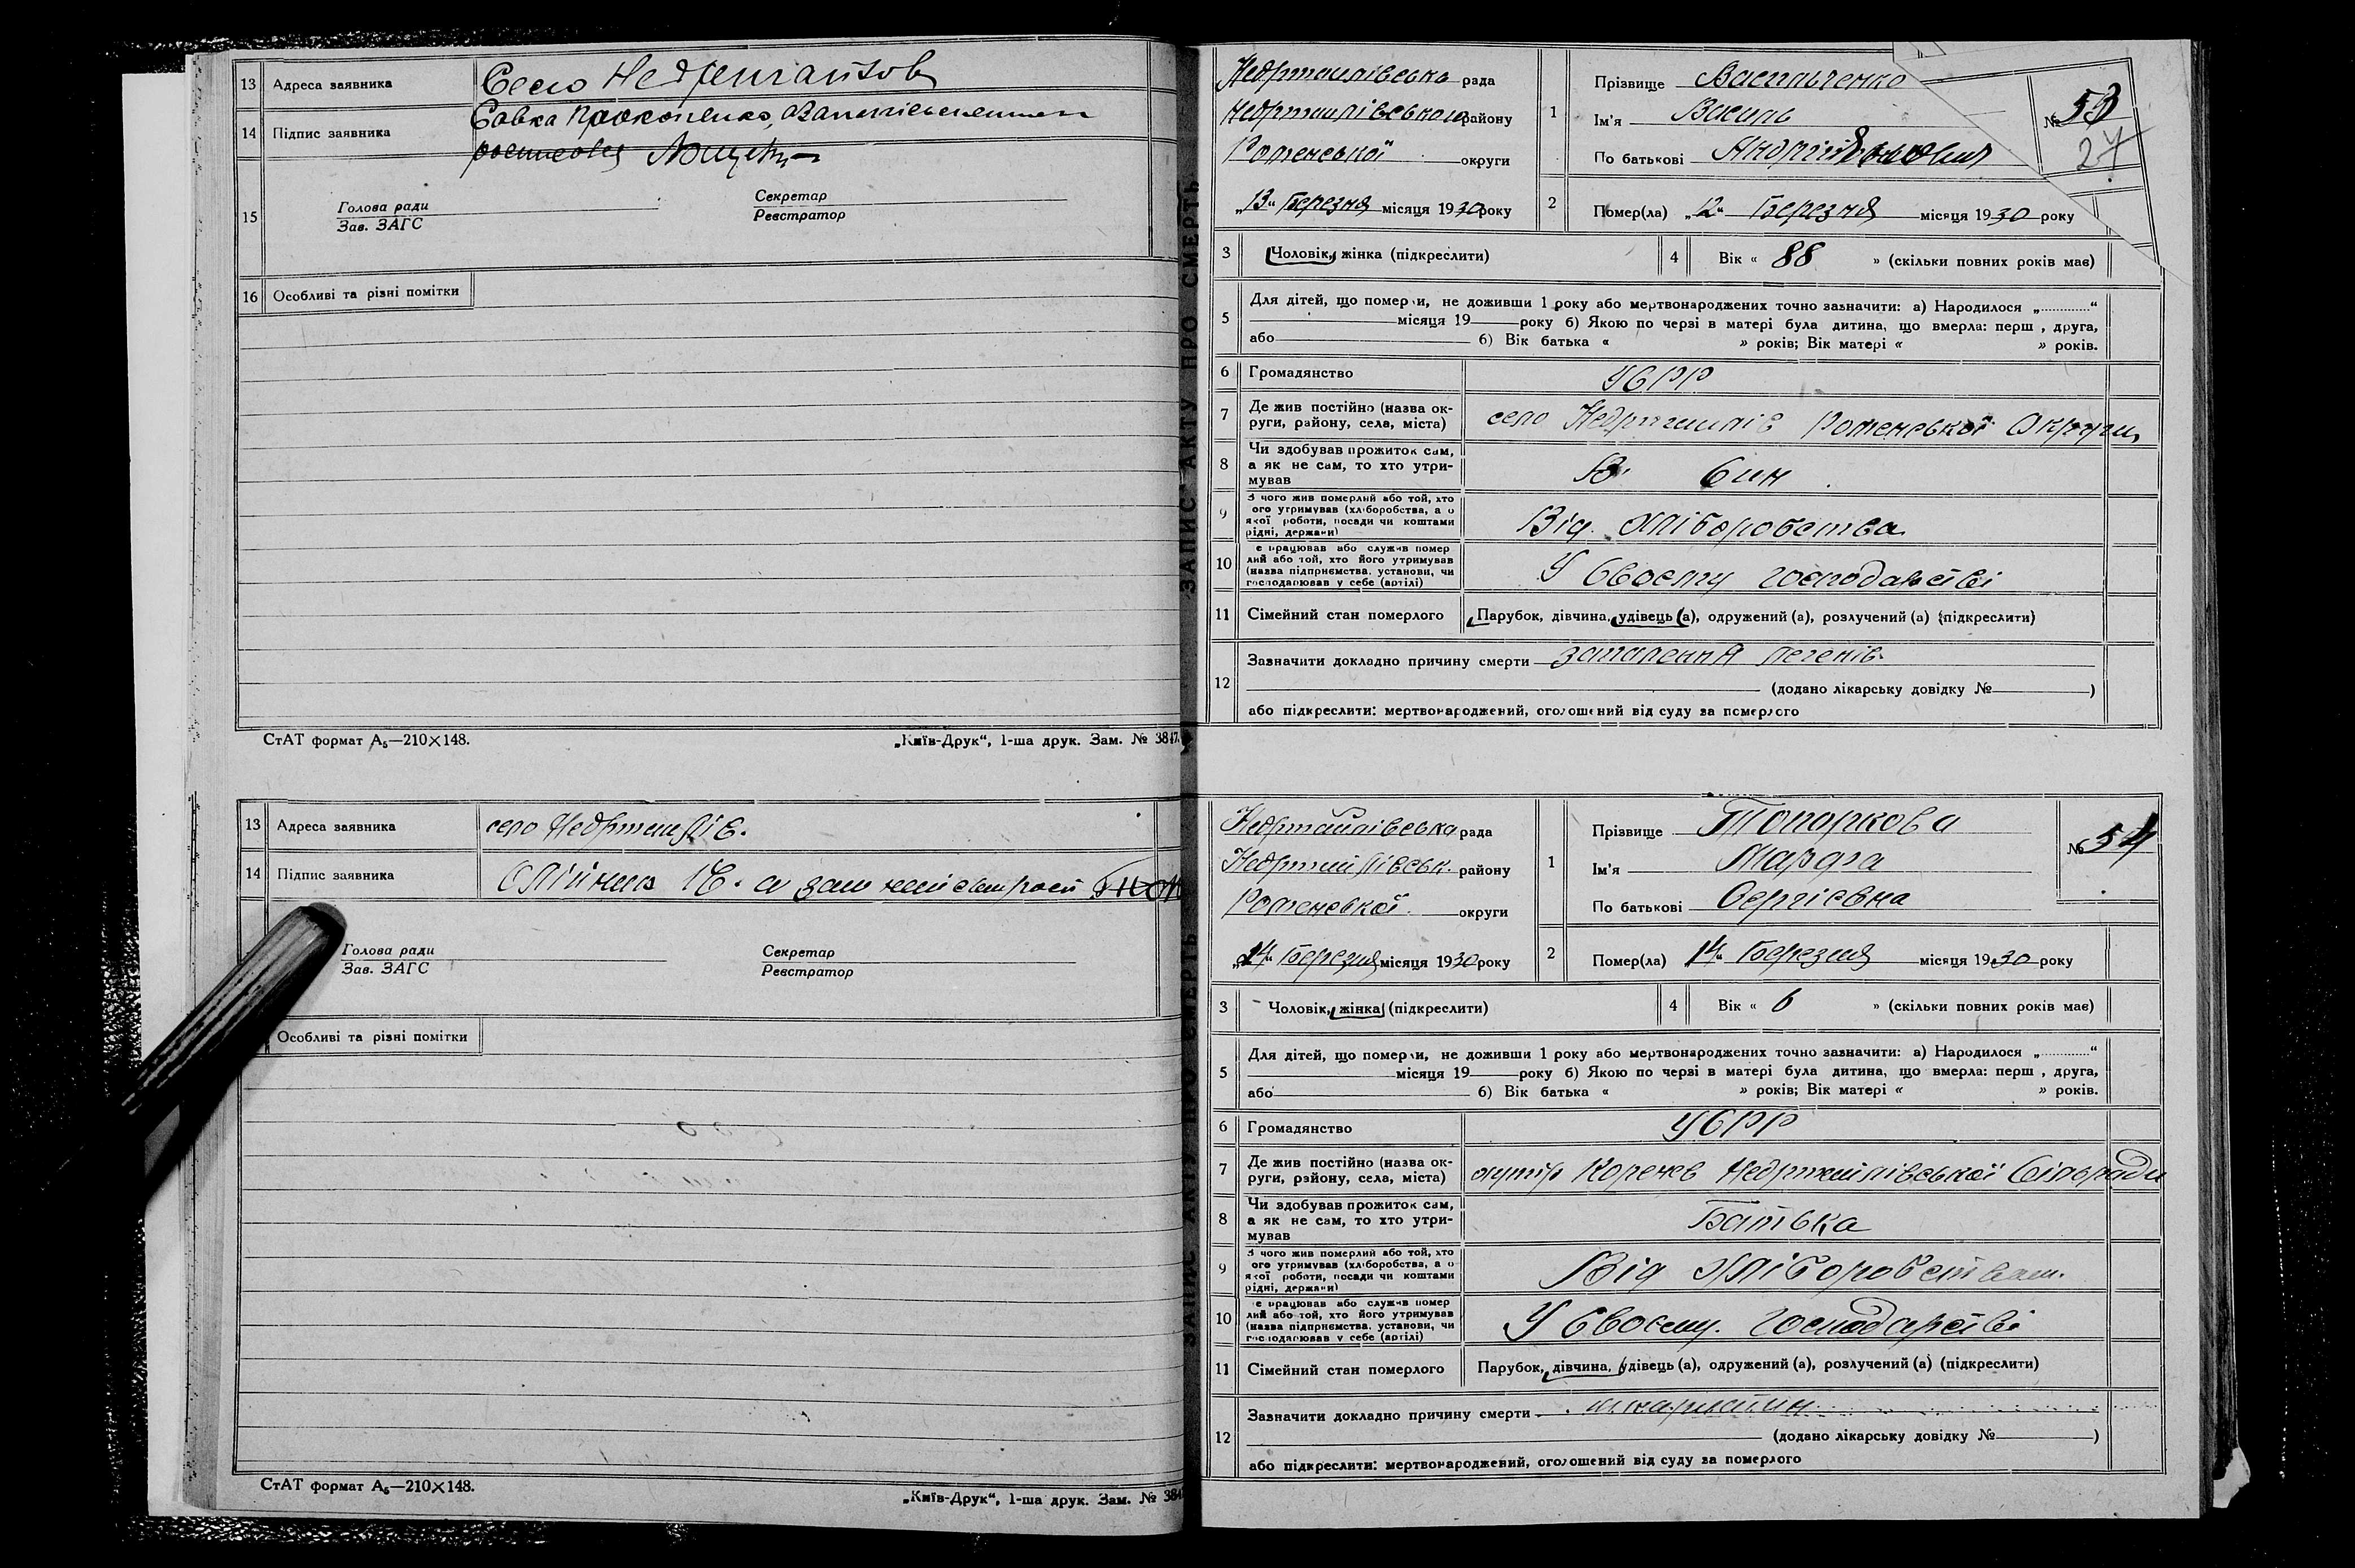 13 Адреса заявника Село Недригайлов
14 Підпис заявника Савка Прокопенко, а за
15 Голова ради Секретар
Зав. ЗАГС Реєстратор
16 Особливі та різні помітки
СтАТ формат А₅—210×148. „Київ-Друк“, 1-ша друк. Зам. № 3847.
13 Адреса заявника село Недригайлів.
14 Підпис заявника а за
Голова ради Секретар
Зав. ЗАГС Реєстратор
Особливі та різні помітки
СтАТ формат А₅—210×148. „Київ-Друк“, 1-ша друк. Зам. № 384
ЗАПИС АКТУ ПРО СМЕРТЬ
Недригайлівська рада
Недригайлівського району
Роменської округи
„13“ Березня місяця 1930 року
1 Прізвище Васильченко
Ім'я Василь
По батькові
№ 53
27
2 Помер(ла) „12“ Березня місяця 1930 року
3 Чоловік, жінка (підкреслити) 4 Вік « 88 » (скільки повних років має)
5 Для дітей, що померли, не доживши 1 року або мертвонароджених точно зазначити: а) Народилося „............“
місяця 19 року б) Якою по черзі в матері була дитина, що вмерла: перш , друга,
або 6) Вік батька « » років; Вік матері « » років.
6 Громадянство УСРР
7 Де жив постійно (назва округи, району, села, міста) село Недригайлів Роменської Округи
8 Чи здобував прожиток сам, а як не сам, то хто утримував Син
9 З чого жив померлий або той, хто ого утримував (хліборобства, а о якої роботи, посади чи коштами рідні, держави) Від хліборобства
10 е працював або служив помер лий або той, хто його утримував (назва підприємства, установи, чи господарював у себе (артілі) У своєму господарстві
11 Сімейний стан померлого Парубок, дівчина, удівець (а), одружений (а), розлучений (а) (підкреслити)
12 Зазначити докладно причину смерти запалення легенів
(додано лікарську довідку № )
або підкреслити: мертвонароджений, оголошений від суду за померлого
ЗАПИС АКТУ ПРО СМЕРТЬ
Недригайлівська рада
Недригайлівськ. району
Роменської округи
„14“ Березня місяця 1930 року
1 Прізвище Топоркова
Ім'я Марфа
По батькові Сергієвна
№ 54
2 Помер(ла) „14“ Березня місяця 1930 року
3 Чоловік, жінка (підкреслити) 4 Вік « 6 » (скільки повних років має)
5 Для дітей, що померли, не доживши 1 року або мертвонароджених точно зазначити: а) Народилося „............“
місяця 19 року б) Якою по черзі в матері була дитина, що вмерла: перш , друга,
або 6) Вік батька « » років; Вік матері « » років.
6 Громадянство УСРР
7 Де жив постійно (назва округи, району, села, міста) хутір Коренев Недригайлівської Сільради
8 Чи здобував прожиток сам, а як не сам, то хто утримував Батька
9 З чого жив померлий або той, хто ого утримував (хліборобства, а о якої роботи, посади чи коштами рідні, держави) Від
10 е працював або служив помер лий або той, хто його утримував (назва підприємства, установи, чи господарював у себе (артілі) У своєму господарстві
11 Сімейний стан померлого Парубок, дівчина, удівець (а), одружений (а), розлучений (а) (підкреслити)
12 Зазначити докладно причину смерти
(додано лікарську довідку № )
або підкреслити: мертвонароджений, оголошений від суду за померлого